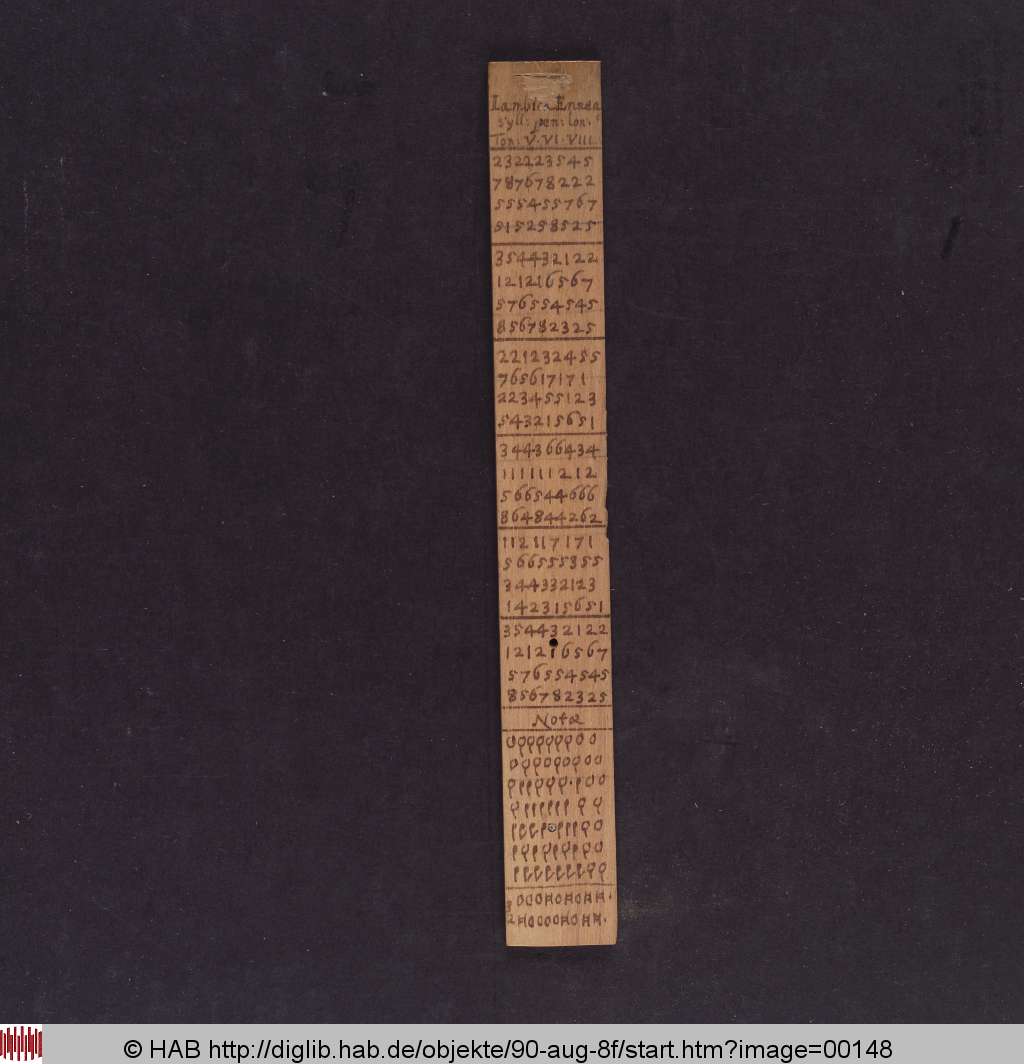 Iambica Ennea
Syll: pen: lon:
Ton: V. VI. VIII
232223545
787678222
555455767
515258525
354432122
121216567
576554545
856782325
221232455
765617171
223455123
543215651
344366434
111111212
566544666
864844262
112117171
566555355
344332123
142315651
354432122
121216567
576554545
856782325
Notæ
3
2
© HAB http://diglib.hab.de/objekte/90-aug-8f/start.htm?image=00148